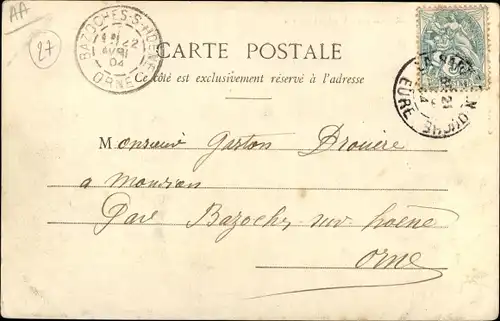 AA
27
BAZOCHES-S-HOENE
22
AVRIL
04
ORNE
CARTE POSTALE
Ce côté est exclusivement réservé à l'adresse
21
EURE
Monsieur Gaston Drouère
a
par Bazoches-sur-hoëne
Orne